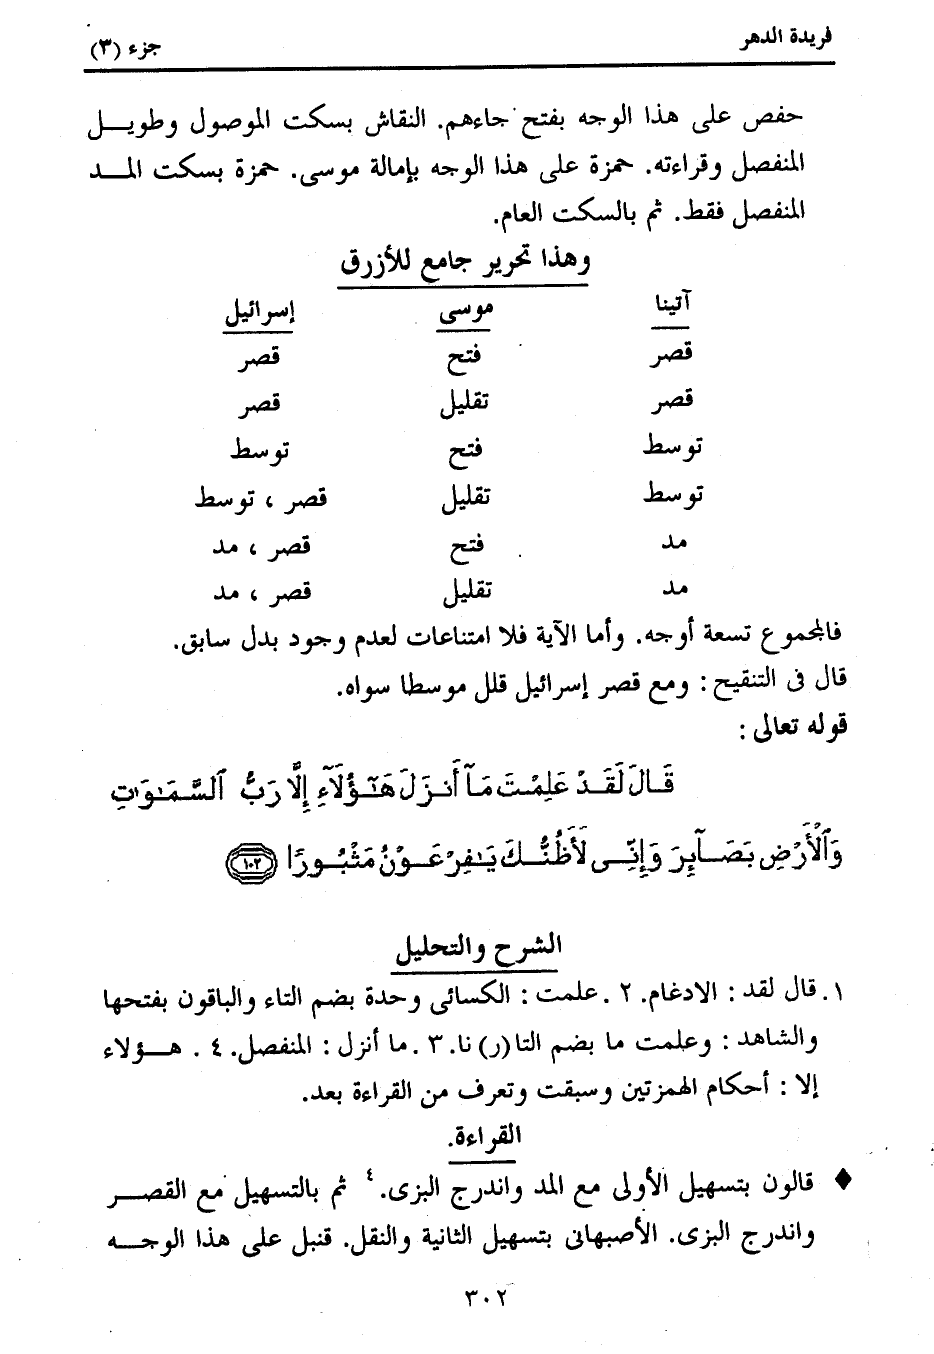 فريدة الدهر جزء (٣)
حفص على هذا الوجه بفتح جاءهم. النقاش بسكت الموصول وطويــل
المنفصل وقراءته. حمزة على هذا الوجه بإمالة موسى. حمزة بسكت المــد
المنفصل فقط. ثم بالسكت العام.
وهذا تحرير جامع للأزرق
آتينا موسى إسرائيل
قصر فتح قصر
قصر تقليل قصر
توسط فتح توسط
توسط تقليل قصر ، توسط
مد فتح قصر ، مد
مد تقليل قصر ، مد
فالمجموع تسعة أوجه. وأما الآية فلا امتناعات لعدم وجود بدل سابق.
قال فى التنقيح : ومع قصر إسرائيل قلل موسطا سواه.
قوله تعالى :
قَالَ لَقَدْ عَلِمْتَ مَآ أَنزَلَ هَٰٓؤُلَآءِ إِلَّا رَبُّ ٱلسَّمَٰوَٰتِ
وَٱلْأَرْضِ بَصَآئِرَ وَإِنِّى لَأَظُنُّكَ يَٰفِرْعَوْنُ مَثْبُورًا ١٠٢
الشرح والتحليل
١. قال لقد : الادغام. ٢ .علمت : الكسائى وحدة بضم التاء والباقون بفتحها
والشاهد : وعلمت ما بضم التا (ر) نا. ٣ .ما أنزل : المنفصل. ٤ . هــؤلاء
إلا : أحكام الهمزتين وسبقت وتعرف من القراءة بعد.
القراءة.
♦ قالون بتسهيل الأولى مع المد واندرج البزى.٤ ثم بالتسهيل مع القصــر
واندرج البزى. الأصبهانى بتسهيل الثانية والنقل. قنبل على هذا الوجــه
٣٠٢